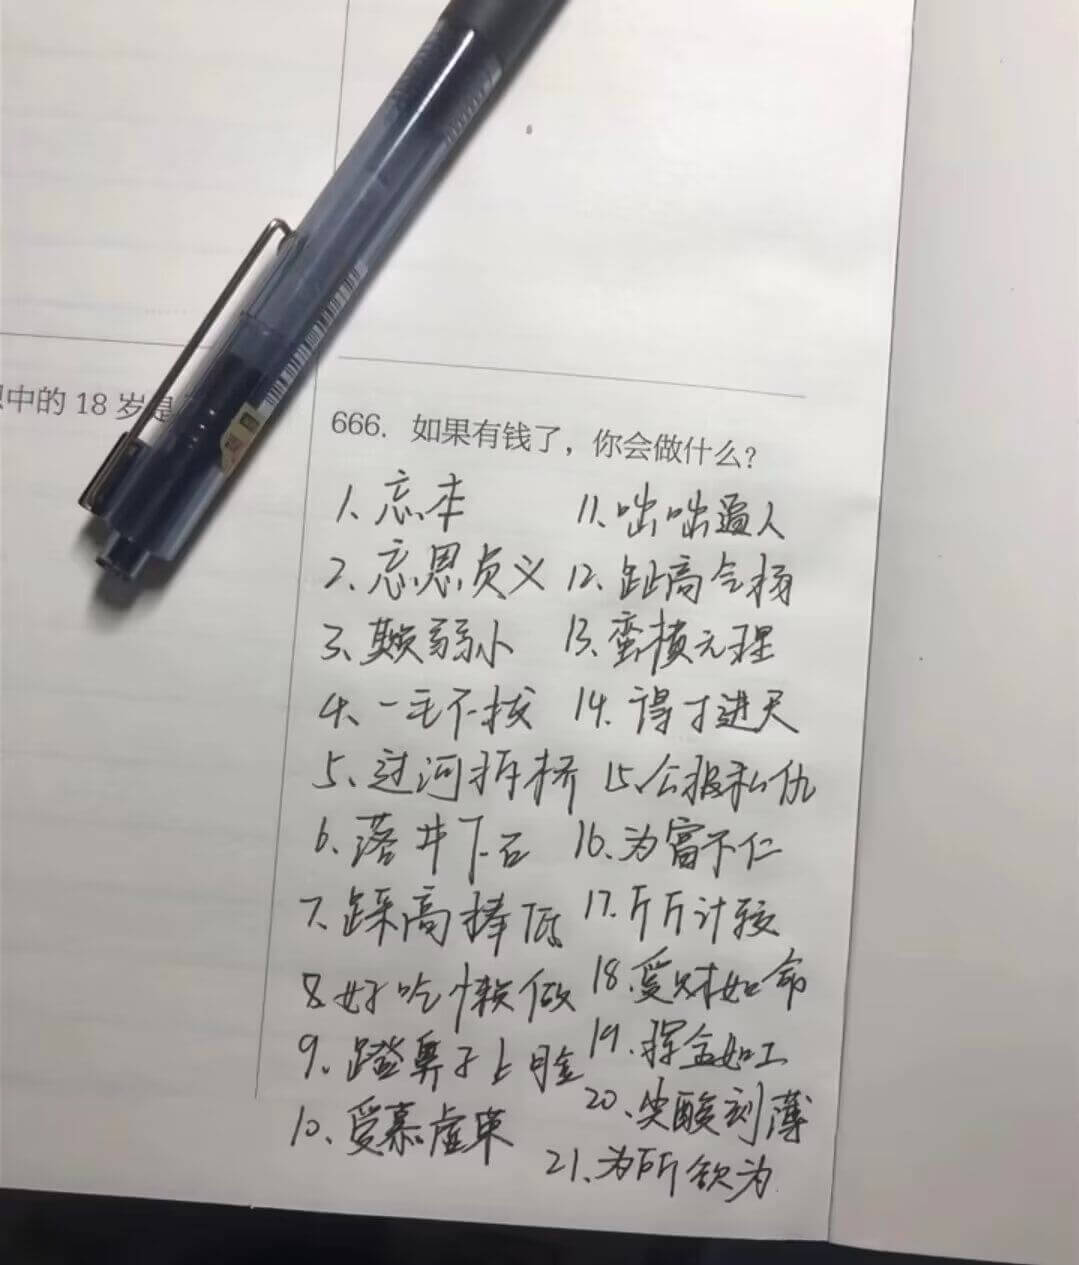 中的 18 岁是
666. 如果有钱了，你会做什么？
1、忘本
2、忘恩负义
3、欺弱小
4、一毛不拔
5、过河拆桥
6、落井下石
7、踩高捧低
8、好吃懒做
9、蹬鼻子上脸
10、爱慕虚荣
11、咄咄逼人
12、趾高气扬
13、蛮横无理
14、得寸进尺
15、公报私仇
16、为富不仁
17、斤斤计较
18、爱财如命
19、挥金如土
20、尖酸刻薄
21、为所欲为